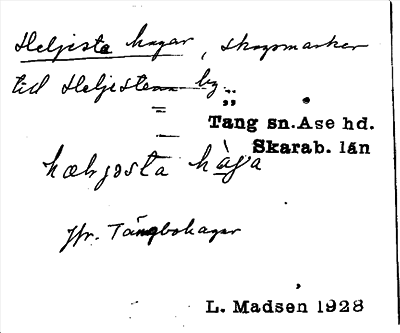 Heljesta hagar, skogsmarker
till Heljestena by.
Tang sn. Ase hd.
Skarab. län
hæljɔsta hàga
Jfr. Tångbohagar
L. Madsen 1928